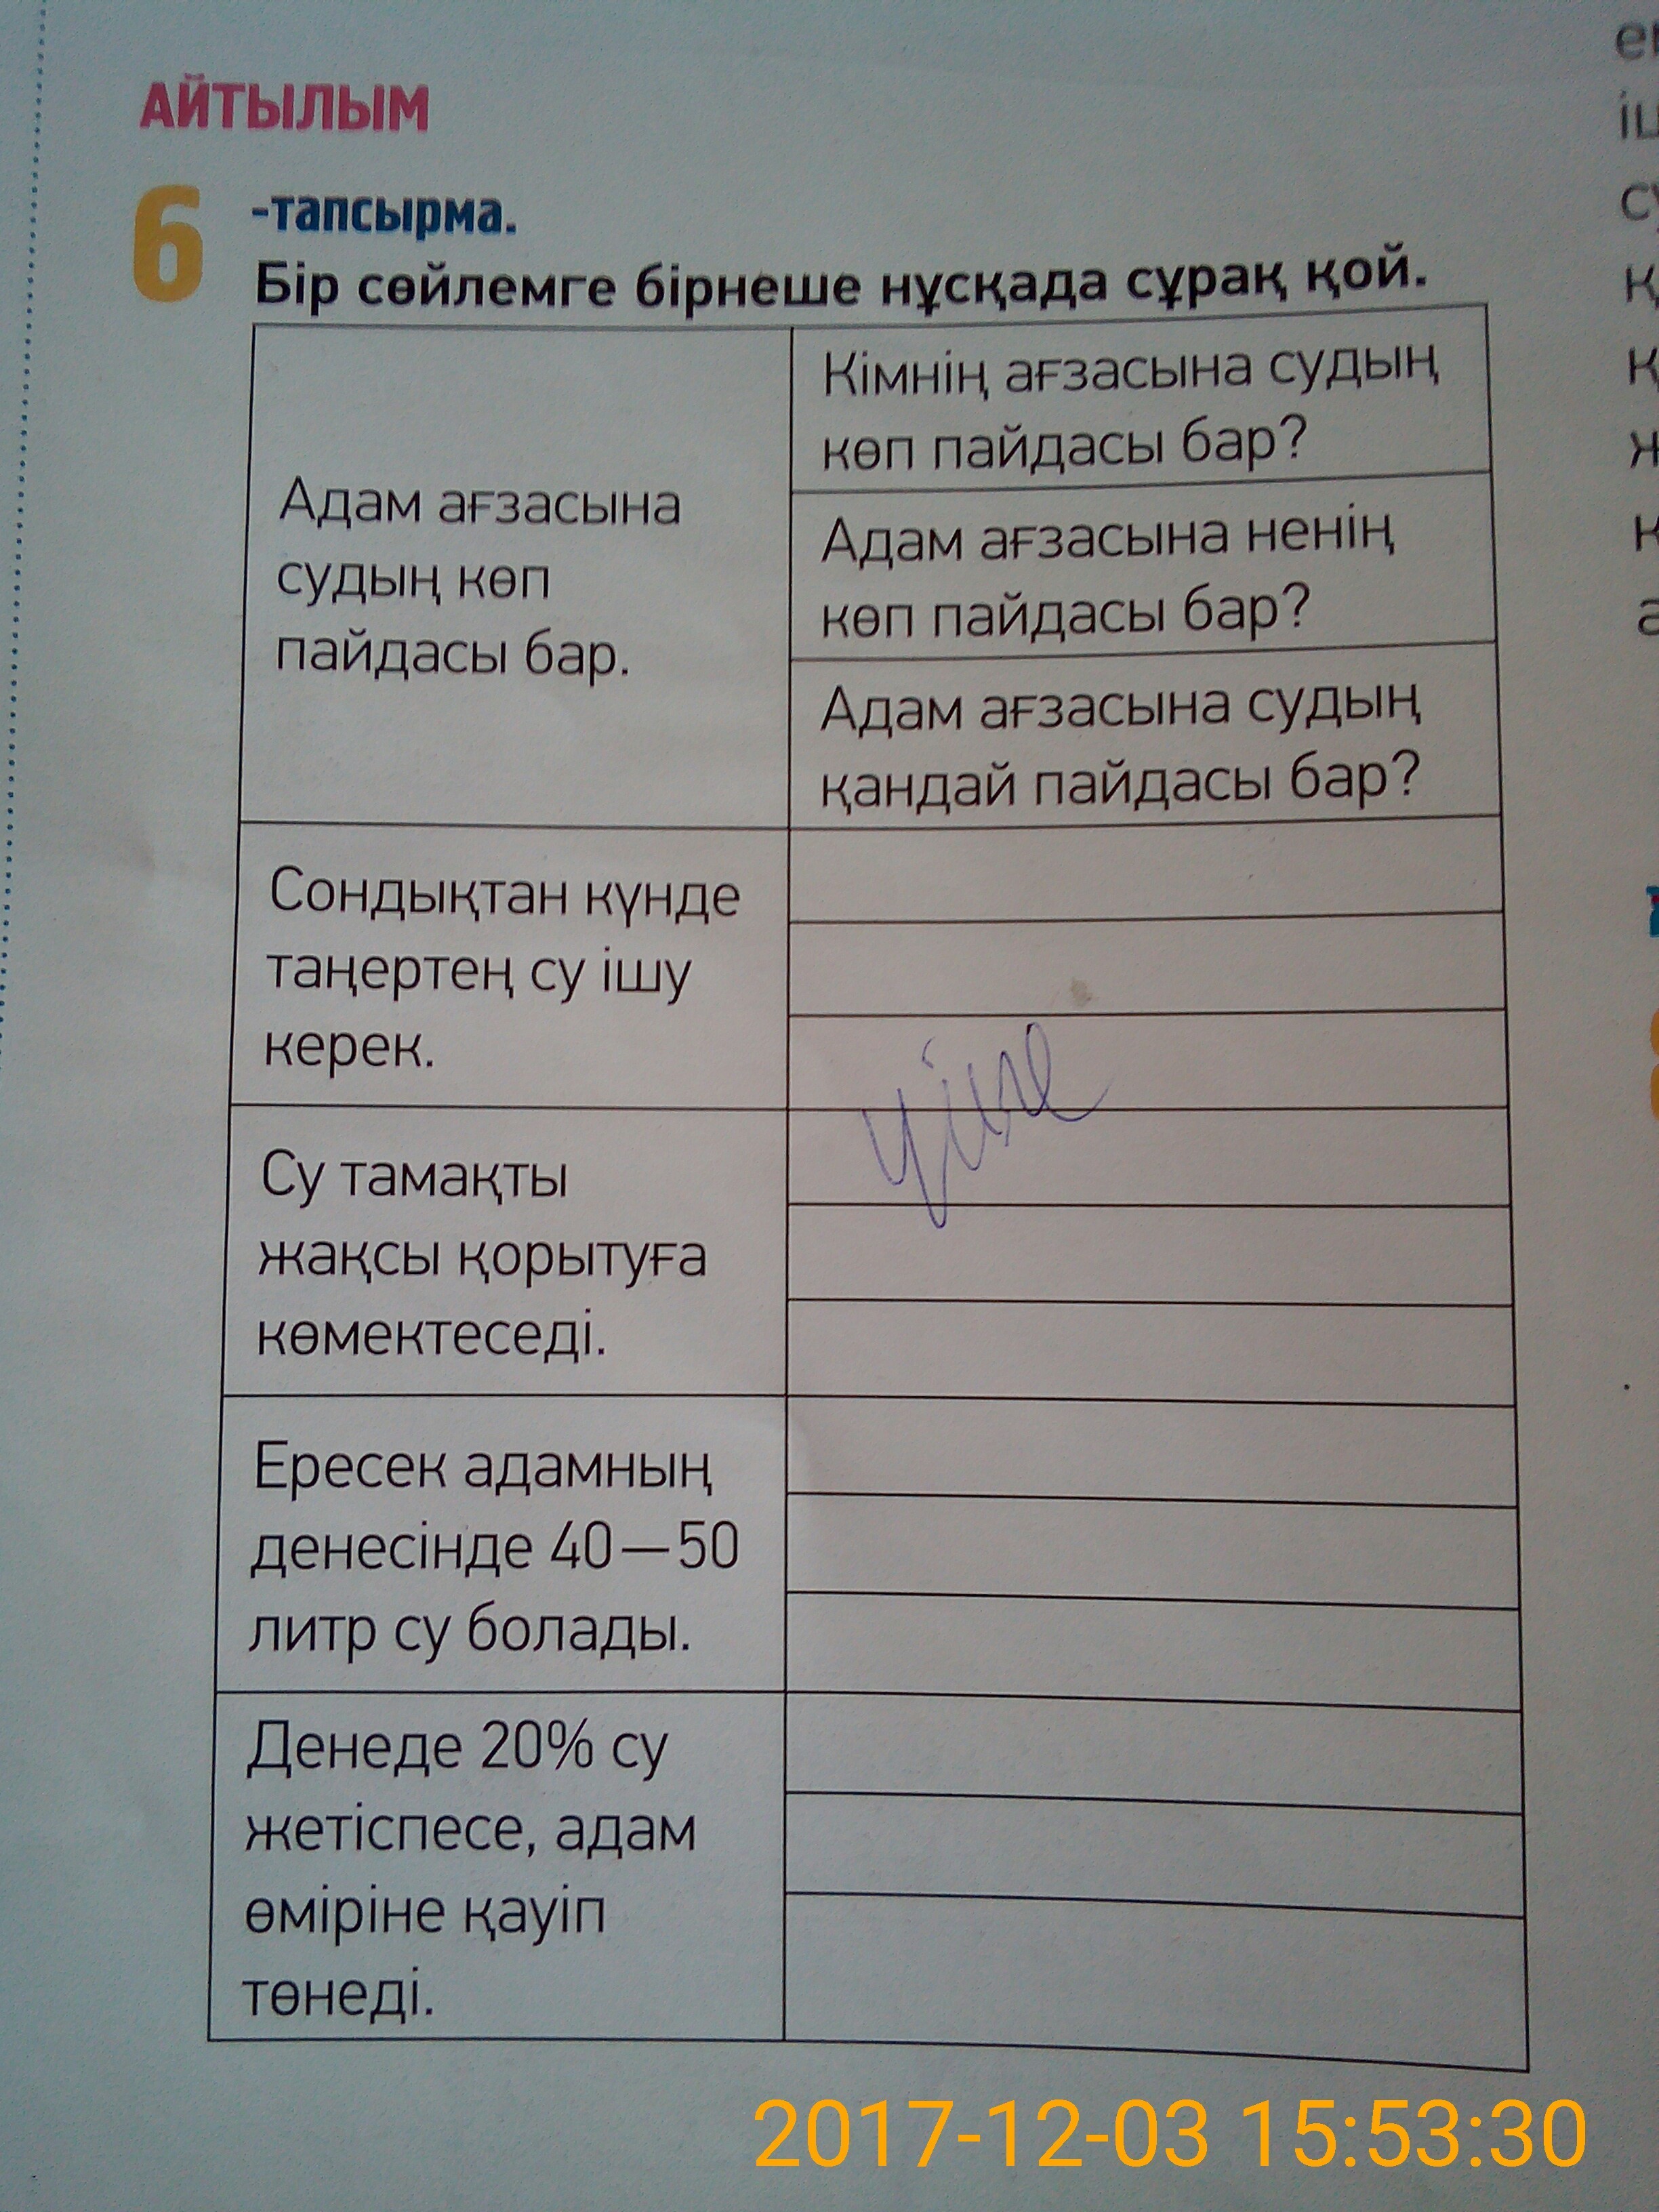 АЙТЫЛЫМ
6 -тапсырма.
Бір сөйлемге бірнеше нұсқада сұрақ қой.
Адам ағзасына
судың көп
пайдасы бар.
Кімнің ағзасына судың
көп пайдасы бар?
Адам ағзасына ненің
көп пайдасы бар?
Адам ағзасына судың
қандай пайдасы бар?
Сондықтан күнде
таңертең су ішу
керек.
үйге
Су тамақты
жақсы қорытуға
көмектеседі.
Ересек адамның
денесінде 40—50
литр су болады.
Денеде 20% су
жетіспесе, адам
өміріне қауіп
төнеді.
2017-12-03 15:53:30